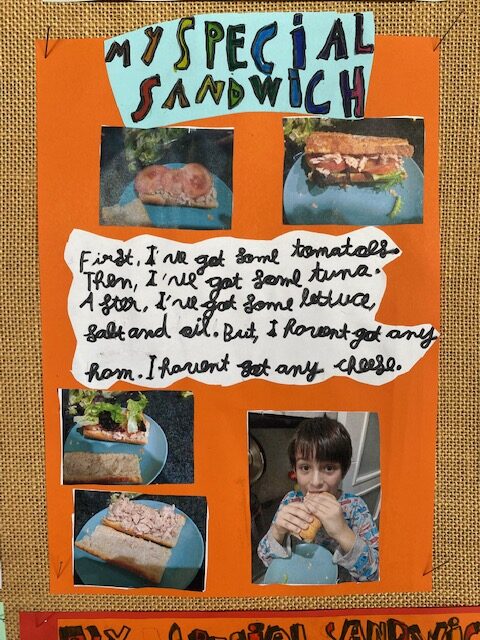 MY SPECIAL
SANDWICH
First, I've got some tomatoes.
Then, I've got some tuna.
After, I've got some lettuce,
salt and oil. But, I havent got any
ham. I havent got any cheese.
MY SPECIAL SANDWIC